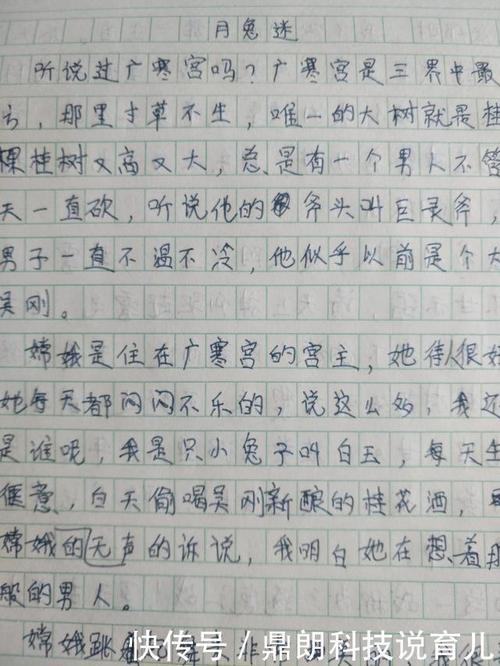 月兔迷
听说过广寒宫吗?广寒宫是三界中最
方,那里寸草不生,唯一的大树就是桂
棵桂树又高又大,总是有一个男人不管
天一直砍,听说他的斧头叫巨灵斧,
男子一直不温不冷,他似乎以前是个大
吴刚。
嫦娥是住在广寒宫的宫主,她待人很好
她每天都闷闷不乐的,说这么多,我还
是谁呢,我是只小兔子叫白玉,每天生
惬意,白天偷喝吴刚新酿的桂花酒,
嫦娥的无声的诉说,我明白她在想着那
般的男人。
嫦娥跳
快传号/鼎朗科技说育儿